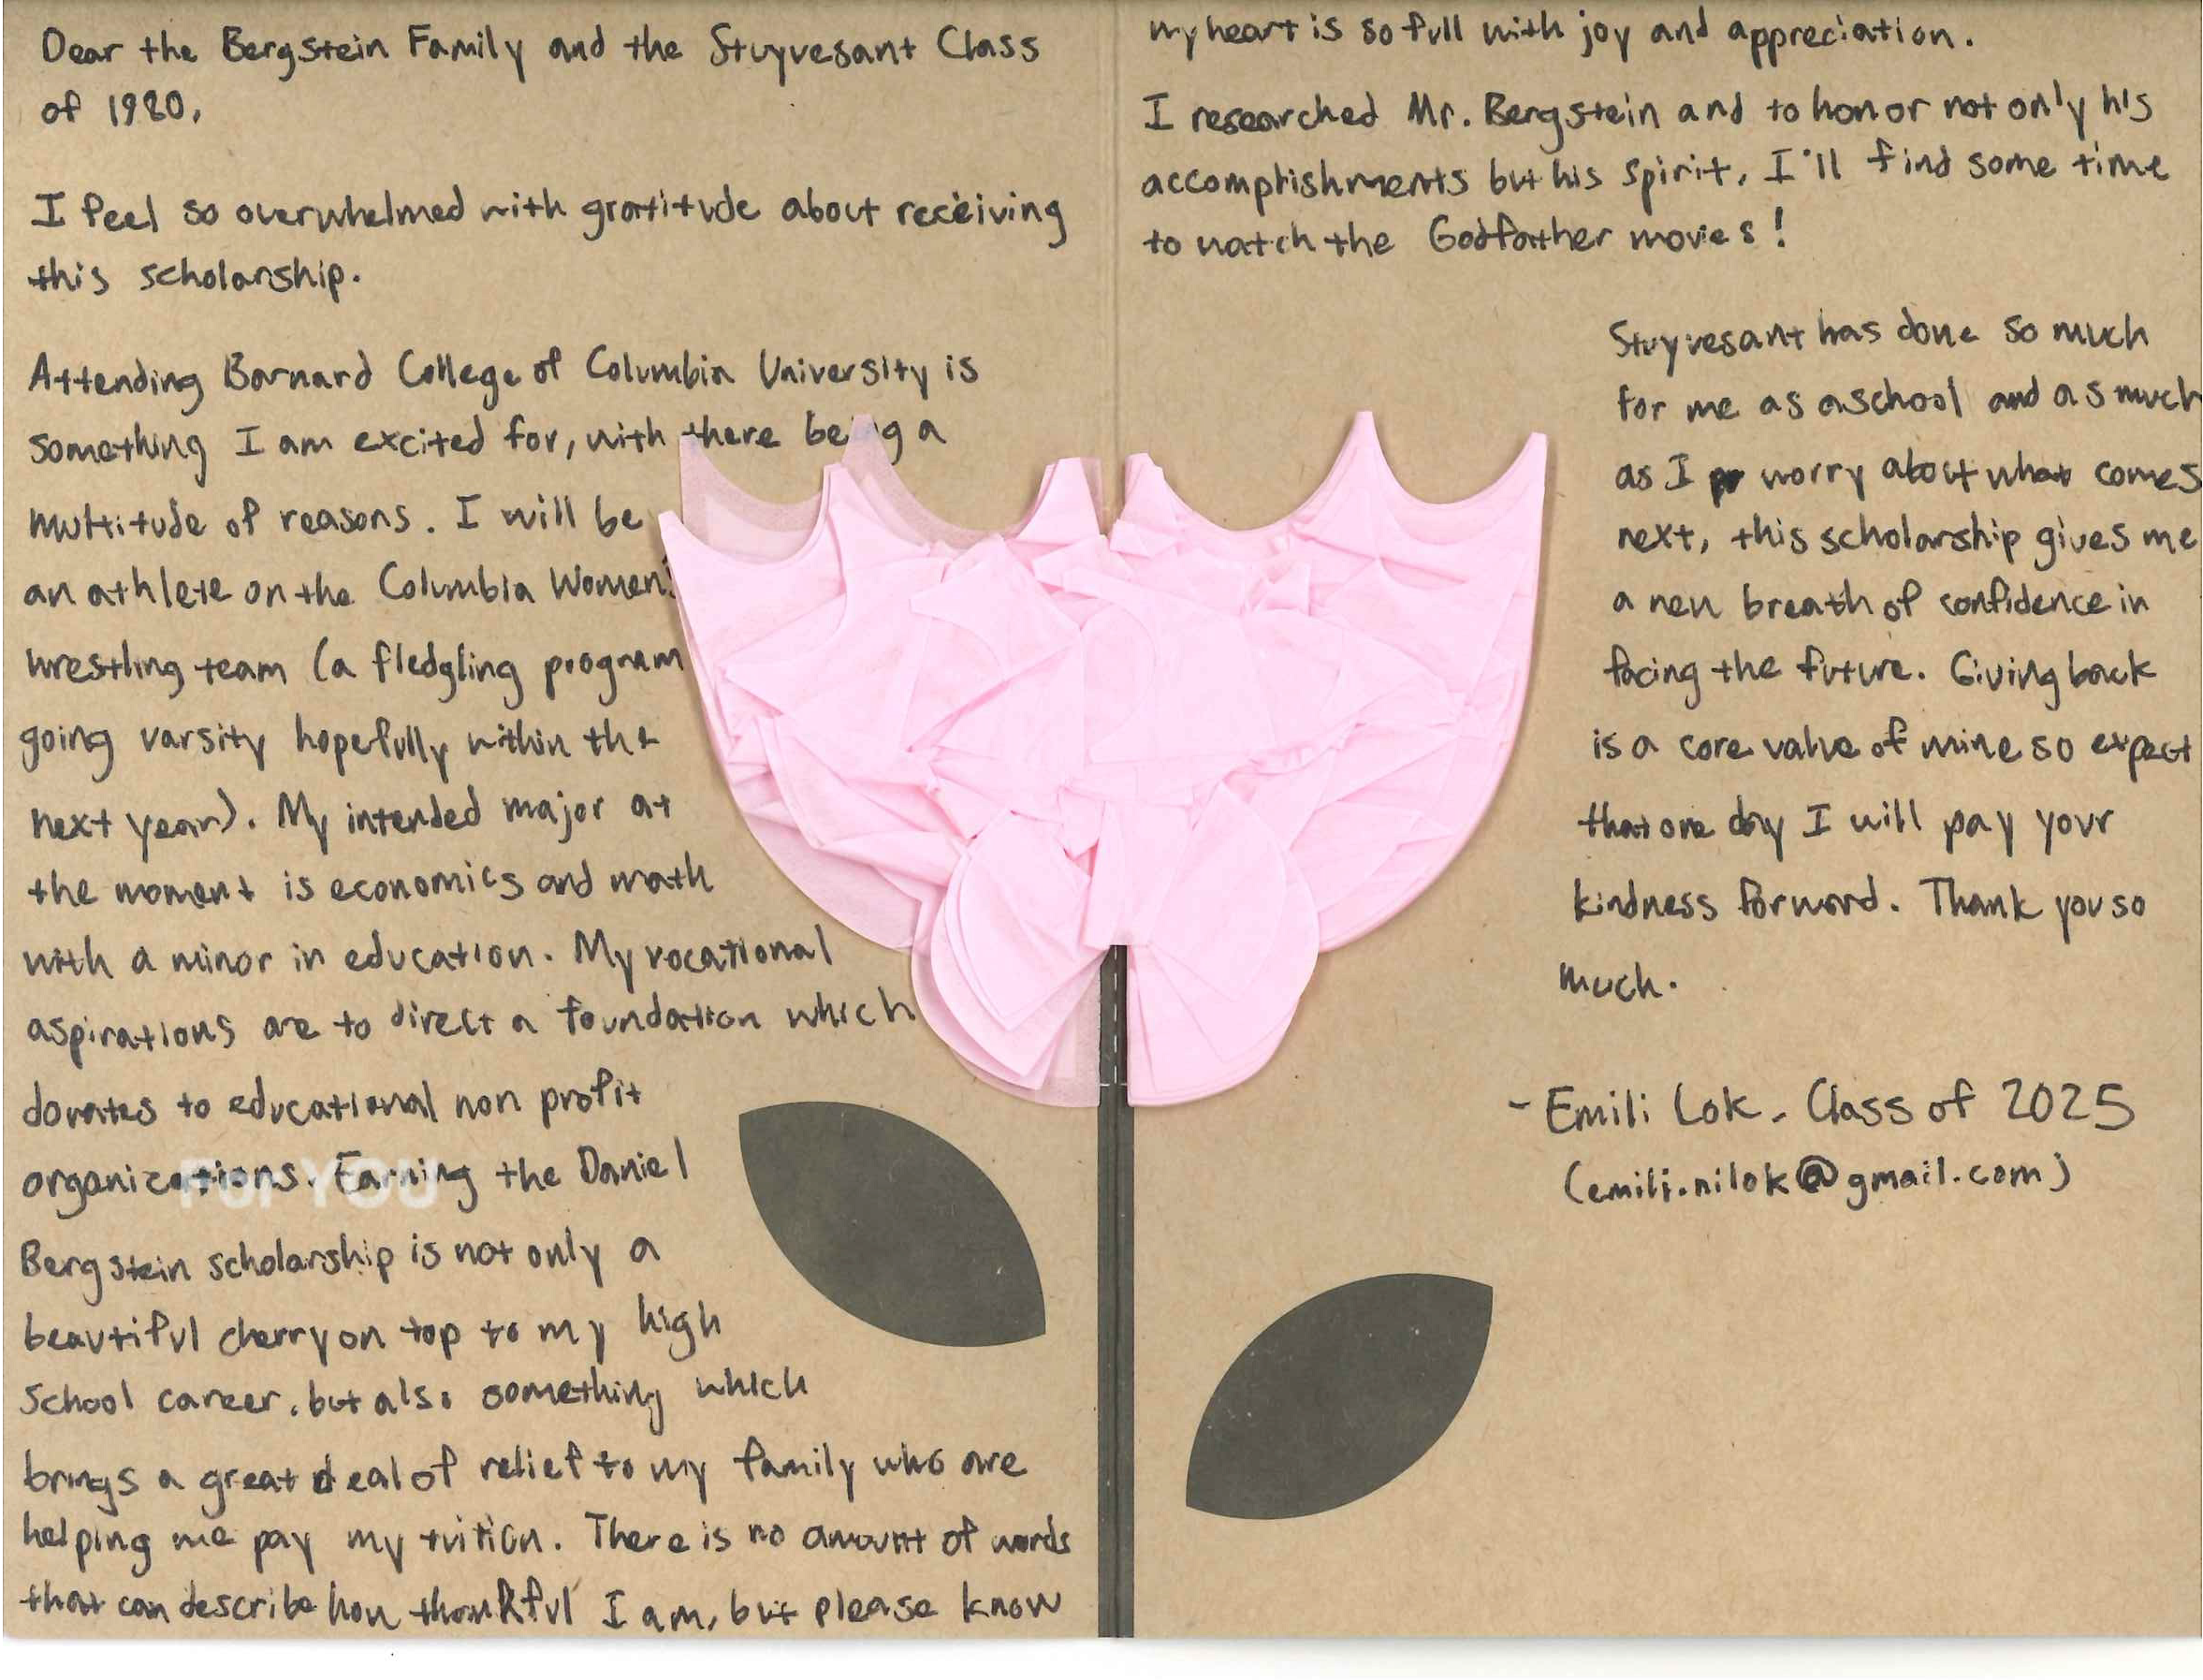 Dear the Bergstein Family and the Stuyvesant Class
of 1980,
I feel so overwhelmed with gratitude about receiving
this scholarship.
Attending Barnard College of Columbia University is
something I am excited for, with there being a
multitude of reasons. I will be
an athlete on the Columbia Women's
wrestling team (a fledgling program
going varsity hopefully within the
next year). My intended major at
the moment is economics and math
with a minor in education. My vocational
aspirations are to direct a foundation which
donates to educational non profit
organizations. Earning the Daniel
For YOU
Bergstein scholarship is not only a
beautiful cherry on top to my high
school career, but also something which
brings a great deal of relief to my family who are
helping me pay my tuition. There is no amount of words
that can describe how thankful I am, but please know
my heart is so full with joy and appreciation.
I researched Mr. Bergstein and to honor not only his
accomplishments but his spirit, I'll find some time
to watch the Godfather movies!
Stuyvesant has done so much
for me as a school and as much
as I worry about what comes
next, this scholarship gives me
a new breath of confidence in
facing the future. Giving back
is a core value of mine so expect
that one day I will pay your
kindness forward. Thank you so
much.
- Emili Lok, Class of 2025
(emili.nilok@gmail.com)